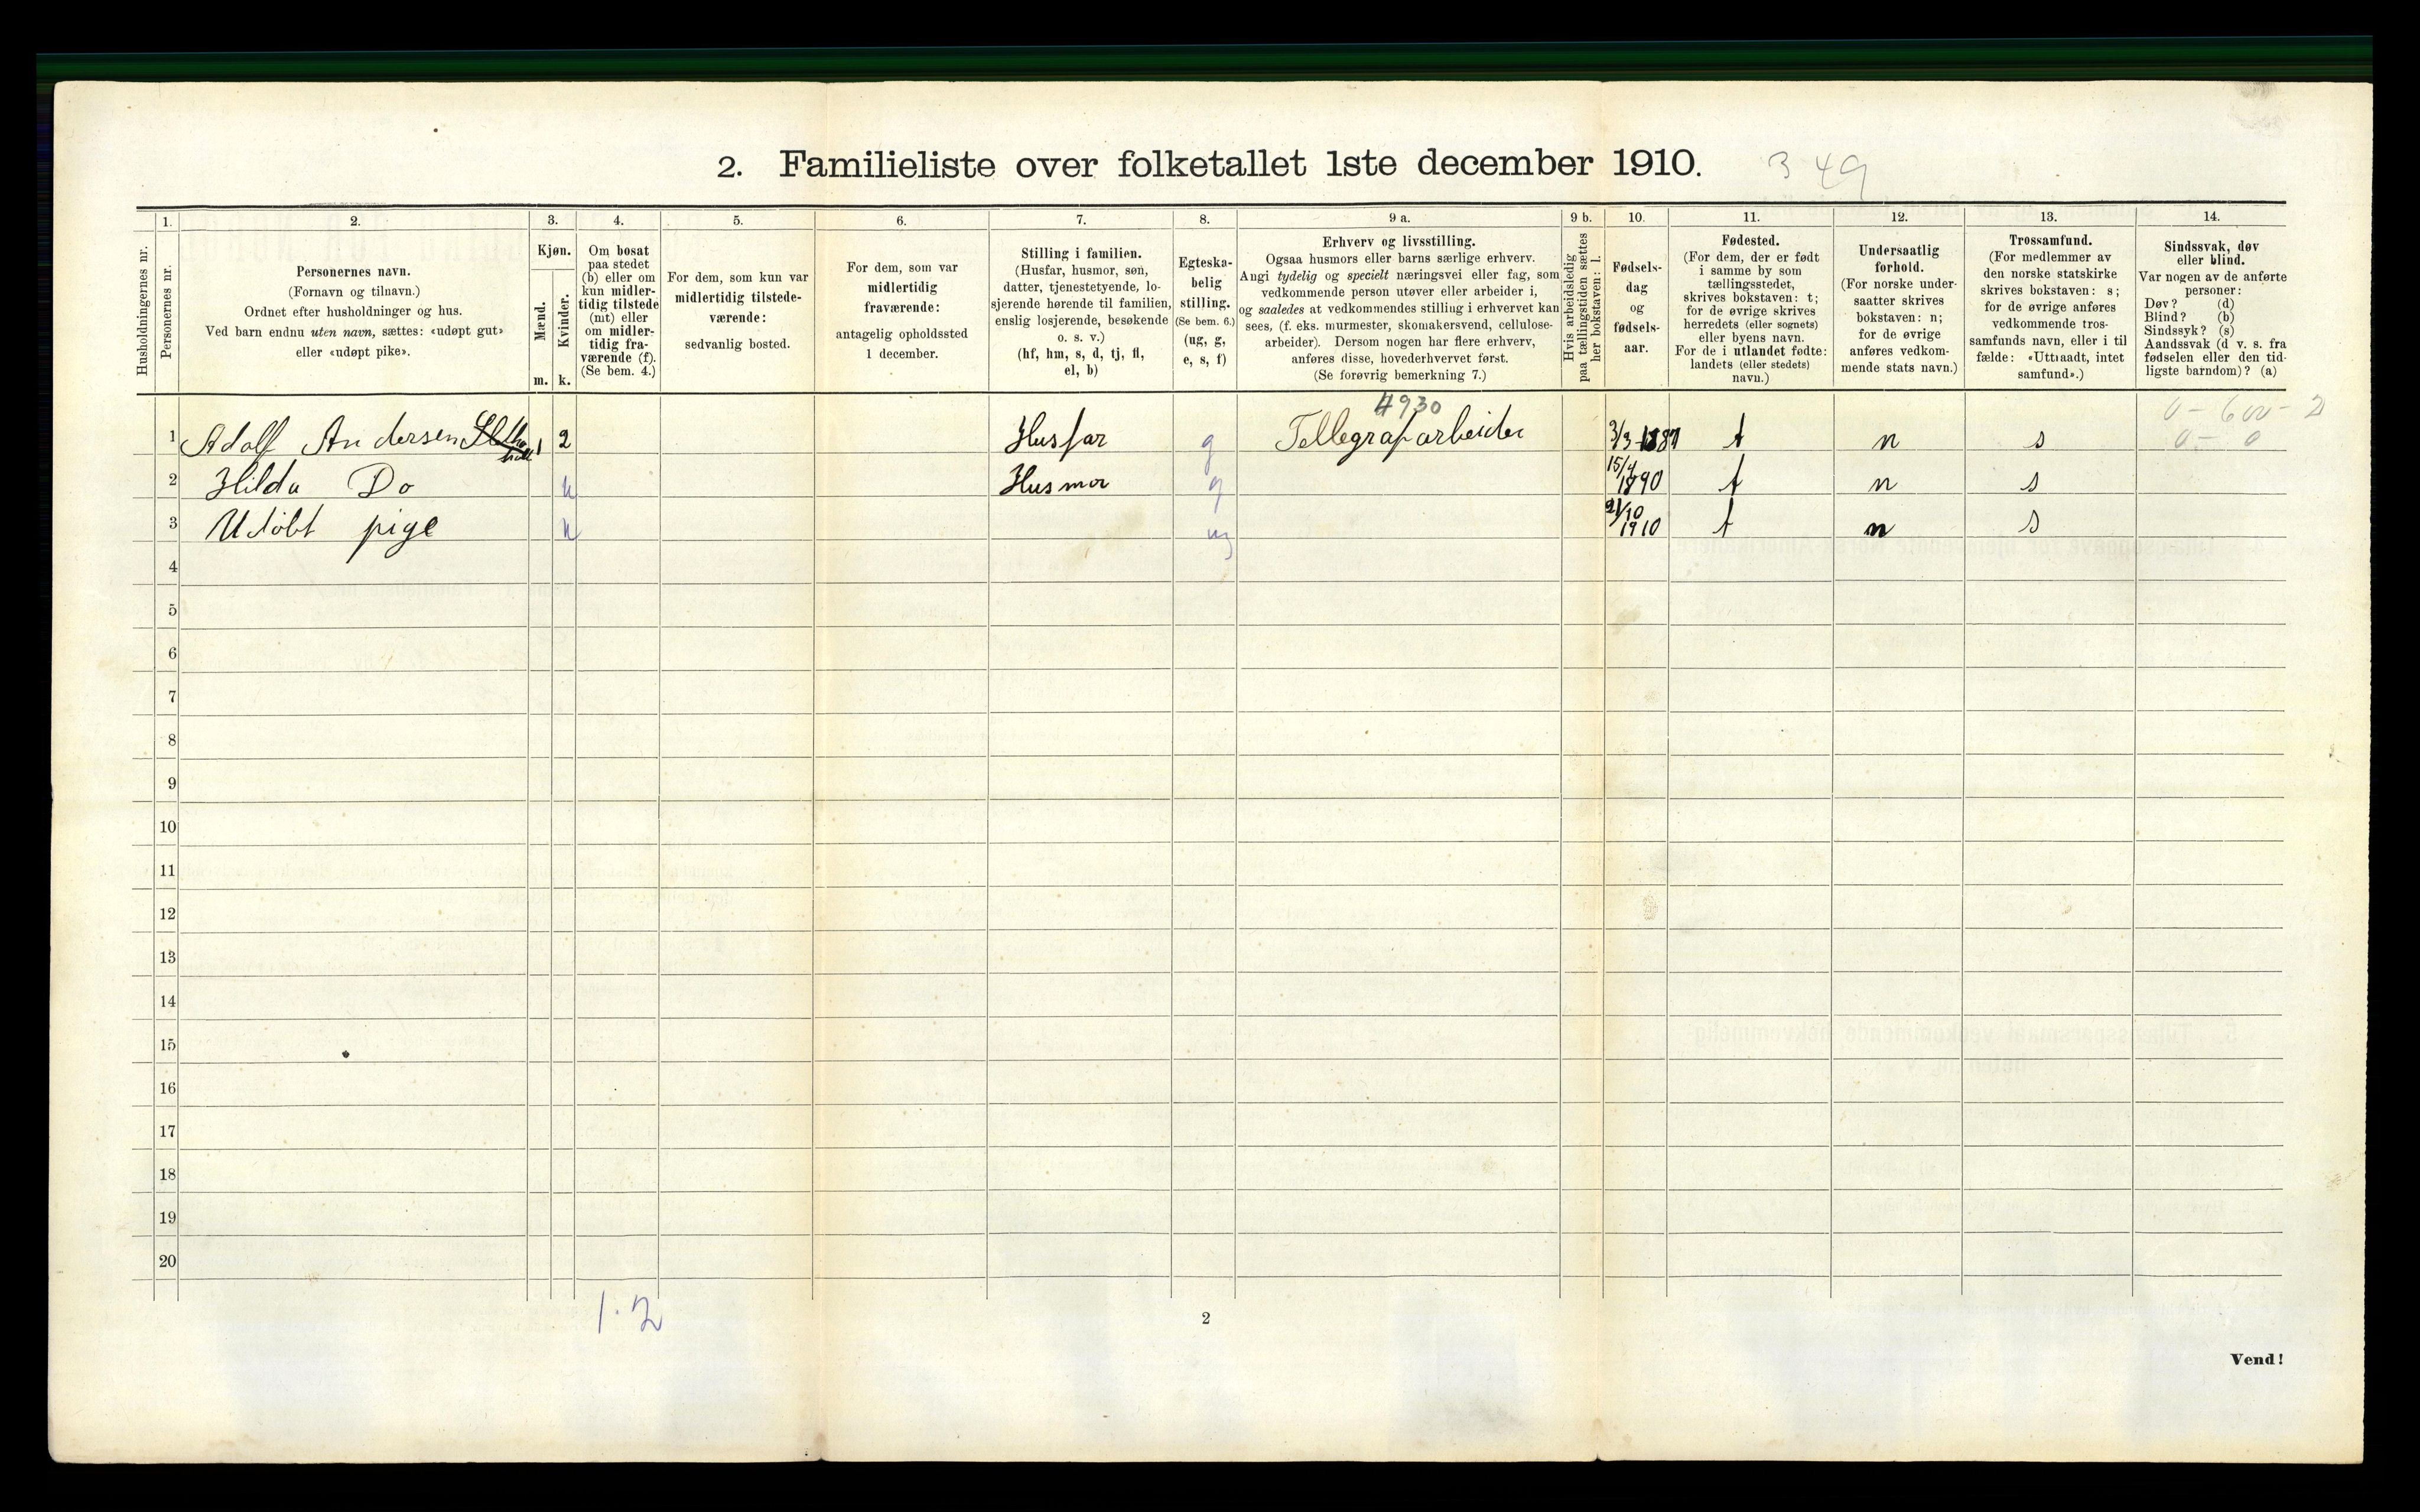 2. Familieliste over folketallet 1ste december 1910. 349
1. 2. 3. 4. 5. 6. 7. 8. 9 a. 9 b. 10. 11. 12. 13. 14.
Husholdningernes nr.
Personernes nr.
Personernes navn.
(Fornavn og tilnavn.)
Ordnet efter husholdninger og hus.
Ved barn endnu uten navn, sættes: «udøpt gut»
eller «udøpt pike».
Kjøn.
Mænd.
m.
Kvinder.
k.
Om bosat
paa stedet
(b) eller om
kun midler-
tidig tilstede
(mt) eller
om midler-
tidig fra-
værende (f).
(Se bem. 4.)
For dem, som kun var
midlertidig tilstede-
værende:
sedvanlig bosted.
For dem, som var
midlertidig
fraværende:
antagelig opholdssted
1 december.
Stilling i familien.
(Husfar, husmor, søn,
datter, tjenestetyende, lo-
sjerende hørende til familien,
enslig losjerende, besøkende
o. s. v.)
(hf, hm, s, d, tj, fl,
el, b)
Egteska-
belig
stilling.
(Se bem. 6.)
(ug, g,
e, s, f)
Erhverv og livsstilling.
Ogsaa husmors eller barns særlige erhverv.
Angi tydelig og specielt næringsvei eller fag, som
vedkommende person utøver eller arbeider i,
og saaledes at vedkommendes stilling i erhvervet kan
sees, (f. eks. murmester, skomakersvend, cellulose-
arbeider). Dersom nogen har flere erhverv,
anføres disse, hovederhvervet først.
(Se forøvrig bemerkning 7.)
Hvis arbeidsledig
paa tællingstiden sættes
her bokstaven: l.
Fødsels-
dag
og
fødsels-
aar.
Fødested.
(For dem, der er født
i samme by som
tællingsstedet,
skrives bokstaven: t;
for de øvrige skrives
herredets (eller sognets)
eller byens navn.
For de i utlandet fødte:
landets (eller stedets)
navn.)
Undersaatlig
forhold.
(For norske under-
saatter skrives
bokstaven: n;
for de øvrige
anføres vedkom-
mende stats navn.)
Trossamfund.
(For medlemmer av
den norske statskirke
skrives bokstaven: s;
for de øvrige anføres
vedkommende tros-
samfunds navn, eller i til
fælde: «Uttraadt, intet
samfund».)
Sindssvak, døv
eller blind.
Var nogen av de anførte
personer:
Døv? (d)
Blind? (b)
Sindssyk? (s)
Aandssvak (d v. s. fra
fødselen eller den tid-
ligste barndom)? (a)
4930 0 - 600 - 2
1 Adolf Andersen 1 2 Husfar g Tellegrafarbeider 3/3-1887 t n s 0 - 0
2 Hilda Do k Husmor g 15/4 1890 t n s
3 Udöbt pige k ug 21/10 1910 t n s
4
5
6
7
8
9
10
11
12
13
14
15
16
17
18
19
20
1 · 2
2
Vend!